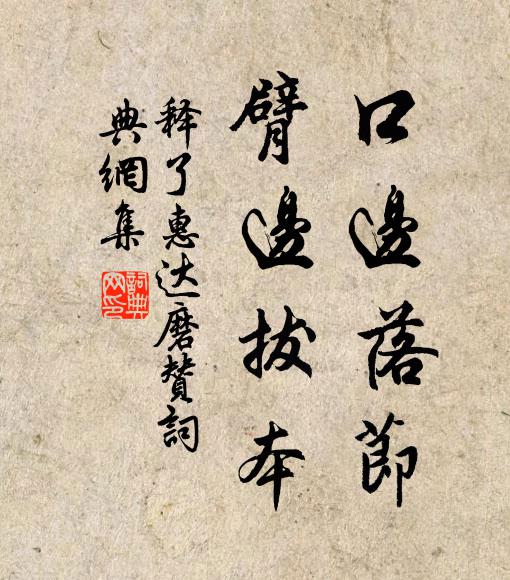 口邊落節
臂邊拔本
释了惠达磨贊詞
典網集
詞典
网印